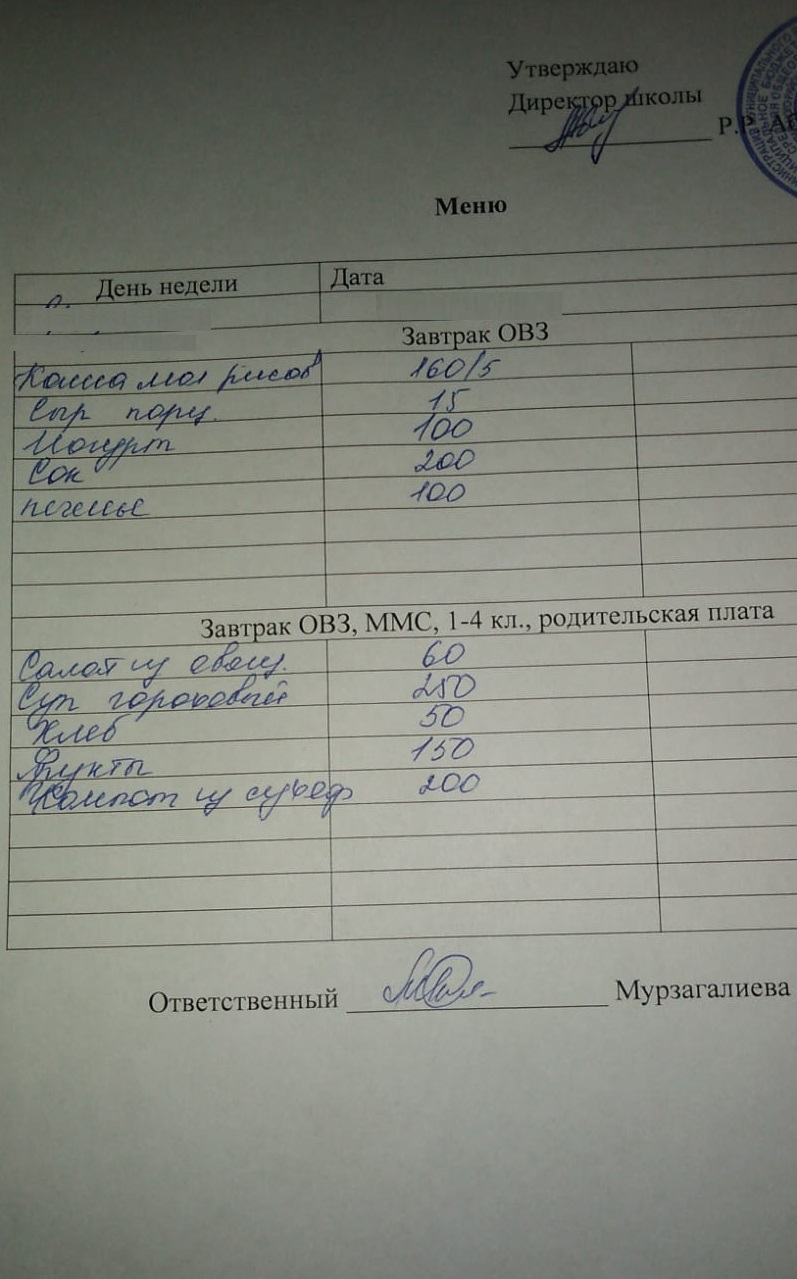 Утверждаю
Директор школы
Р.Р.
Меню
День недели Дата
Завтрак ОВЗ
Каша мол рисов 160/5
Сыр порц. 15
Йогурт 100
Сок 200
печенье 100
Завтрак ОВЗ, ММС, 1-4 кл., родительская плата
Салат из овощ. 60
Суп гороховый 250
Хлеб 50
Фрукты 150
Компот из сухоф 200
Ответственный Мурзагалиева